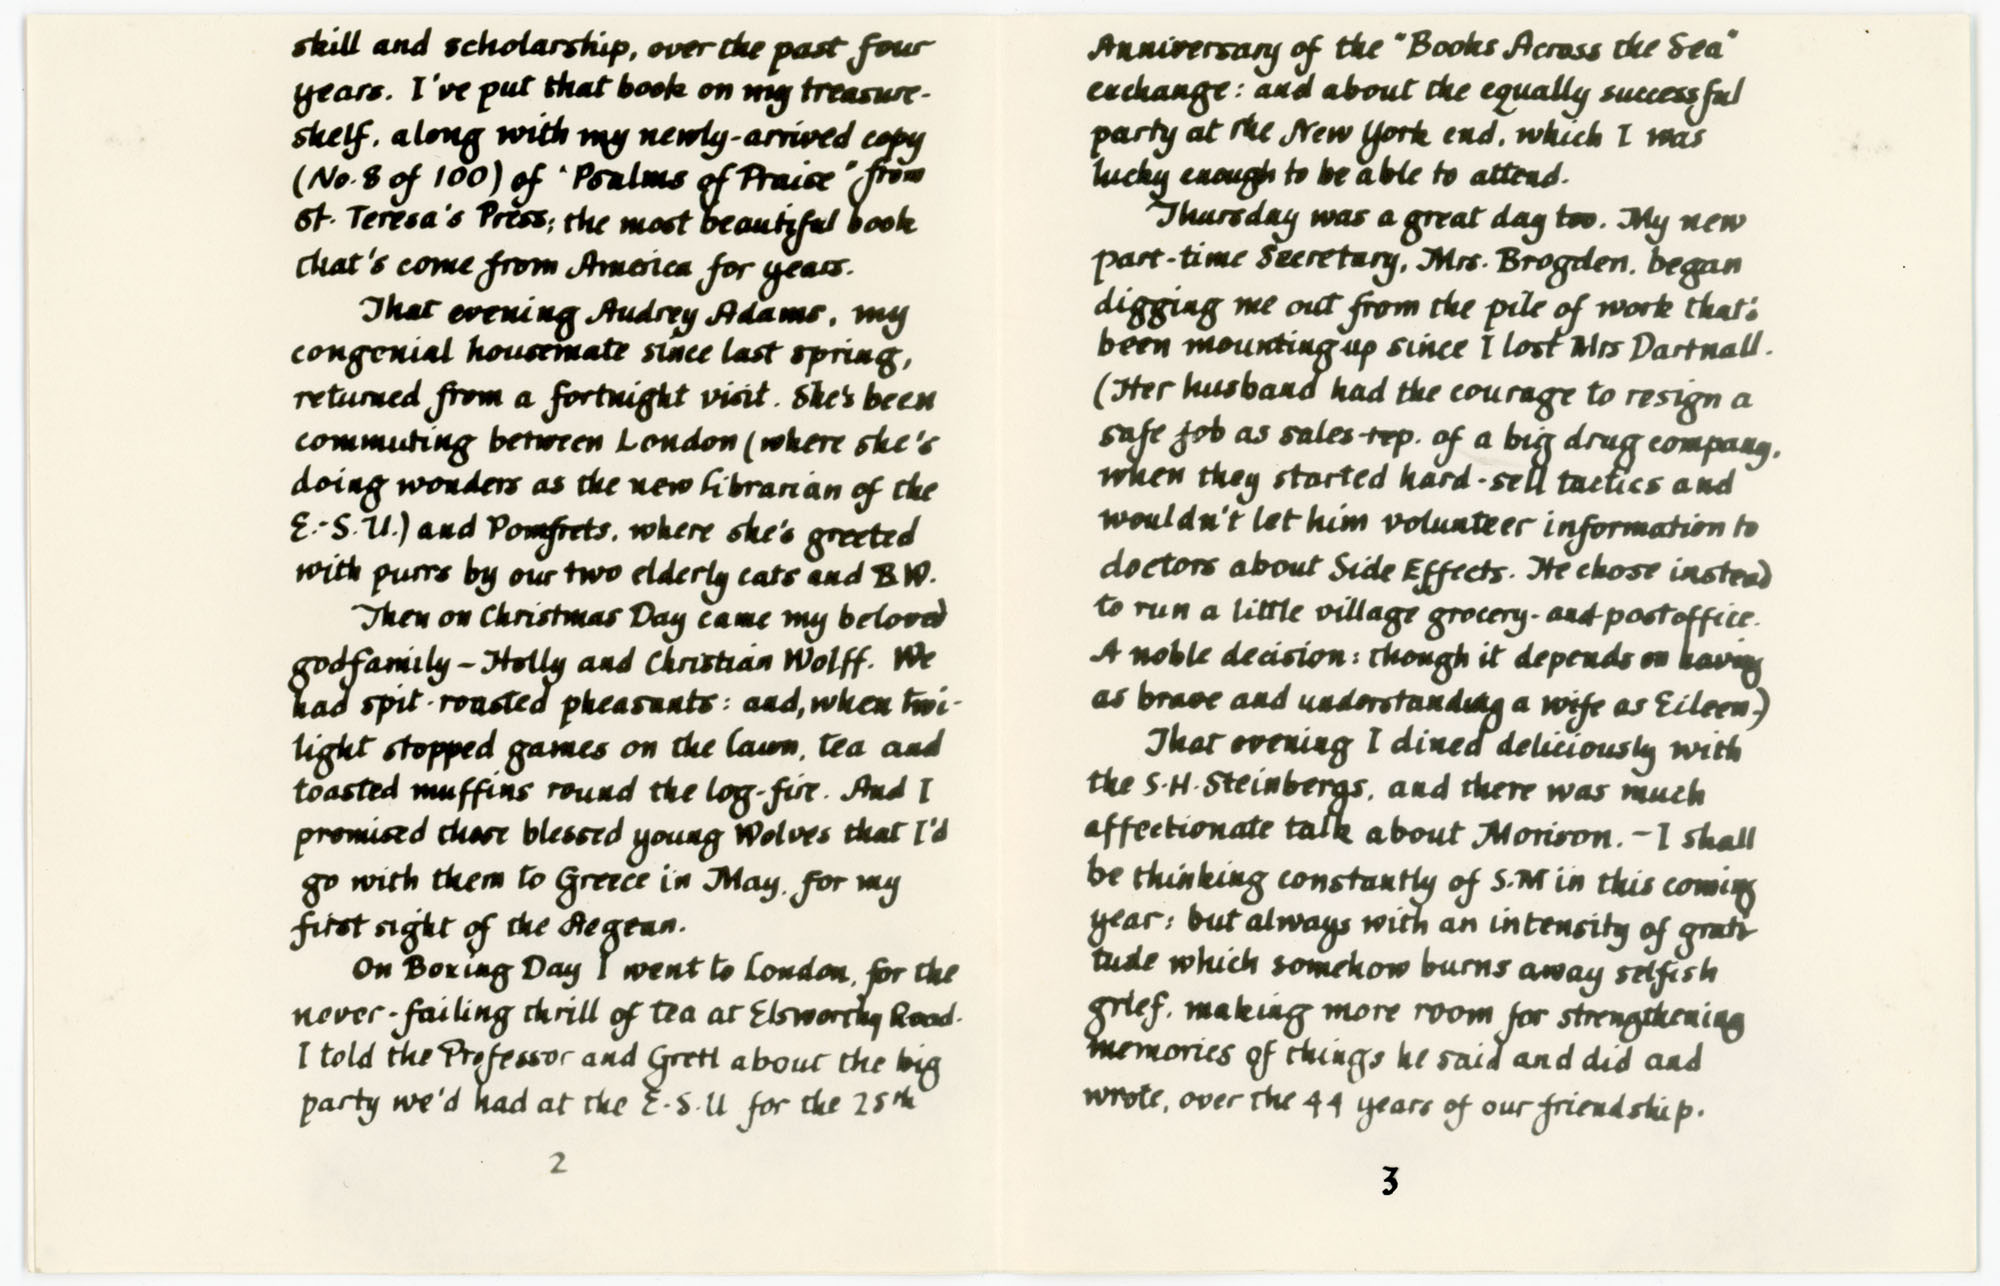 skill and scholarship, over the past four
years. I've put that book on my treasure-
shelf, along with my newly-arrived copy
(No. 8 of 100) of "Psalms of Praise" from
St. Teresa's Press; the most beautiful book
that's come from America for years.
That evening Audrey Adams, my
congenial housemate since last spring,
returned from a fortnight visit. She's been
commuting between London (where she's
doing wonders as the new librarian of the
E.-S.U.) and Pomfrets, where she's greeted
with purrs by our two elderly cats and B.W.
Then on Christmas Day came my beloved
godfamily – Holly and Christian Wolff. We
had spit-roasted pheasants: and, when twi-
light stopped games on the lawn, tea and
toasted muffins round the log-fire. And I
promised those blessed young Wolves that I'd
go with them to Greece in May, for my
first sight of the Aegean.
On Boxing Day I went to London, for the
never-failing thrill of tea at Elsworthy Road.
I told the Professor and Gretl about the big
party we'd had at the E.S.U for the 25th
2
Anniversary of the "Books Across the Sea"
exchange: and about the equally successful
party at the New York end, which I was
lucky enough to be able to attend.
Thursday was a great day too. My new
part-time Secretary, Mrs. Brogden, began
digging me out from the pile of work that's
been mounting up since I lost Mrs Dartnall.
(Her husband had the courage to resign a
safe job as sales-rep. of a big drug company,
when they started hard-sell tactics and
wouldn't let him volunteer information to
doctors about Side Effects. He chose instead
to run a little village grocery-and-postoffice.
A noble decision: though it depends on having
as brave and understanding a wife as Eileen.)
That evening I dined deliciously with
the S.H. Steinbergs, and there was much
affectionate talk about Morison. – I shall
be thinking constantly of S.M in this coming
year: but always with an intensity of grati
tude which somehow burns away selfish
grief, making more room for strengthening
memories of things he said and did and
wrote, over the 44 years of our friendship.
3